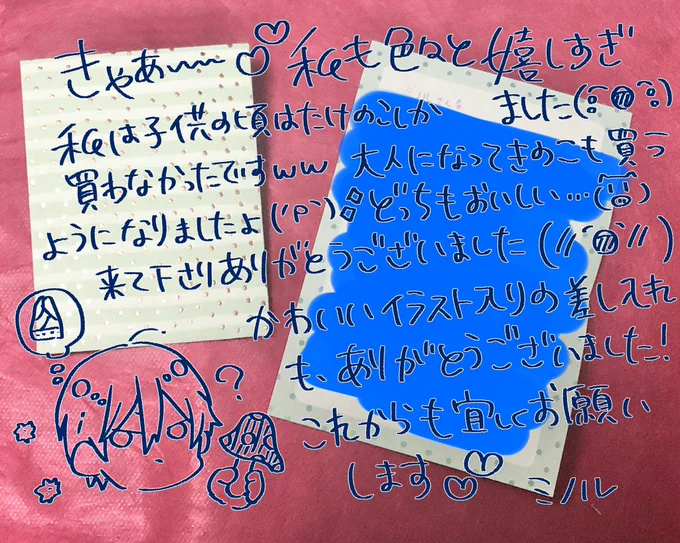 きゃあ〰〰♡♡私も色々と嬉しすぎ
ました(ᵔ⓶ᵔ)
私は子供の頃はたけのこしか
買わなかったですww 大人になってきのこも買う
ようになりましたよ(´ρ`)どっちもおいしい…
来て下さりありがとうございました(//´ⓜ`//)
かわいいイラスト入りの差し入れ
も、ありがとうございました!
これからも宜しくお願い
します♡♡ ミノル
?